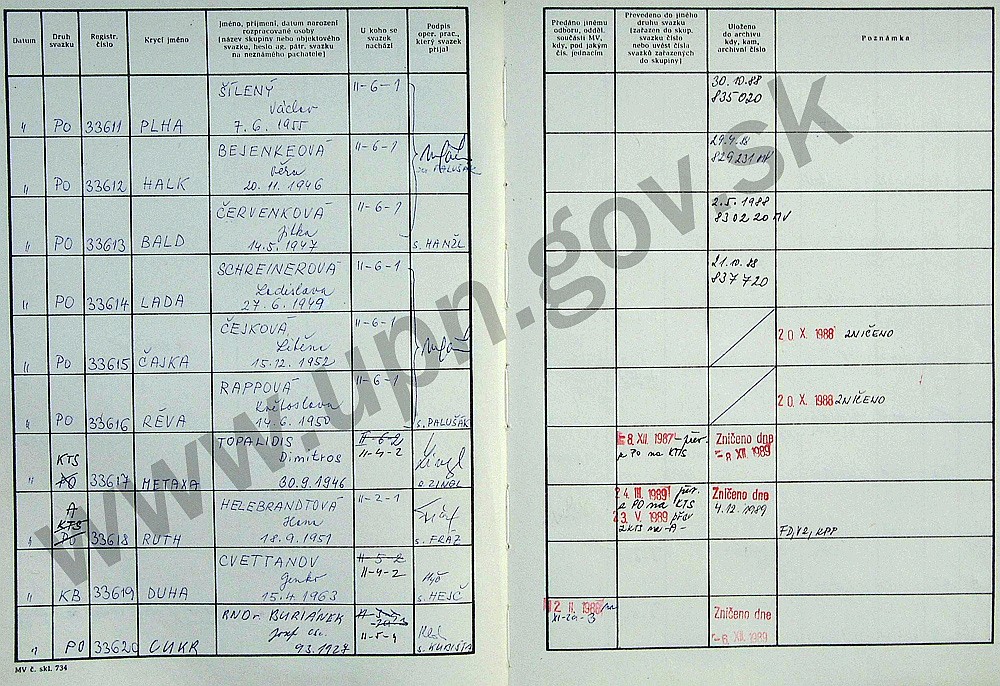 Datum
Druh
svazku
Registr.
číslo
Krycí jméno
Jméno, příjmení, datum narození
rozpracované osoby
[název skupiny nebo objektového
svazku, heslo ag. pátr. svazku
na neznámého pachatele]
U koho se
svazek
nachází
Podpis
oper. prac.,
který svazek
přijal
Předáno jinému
odboru, odděl.
součásti MV,
kdy, pod jakým
čís. jednacím
Převedeno do jiného
druhu svazku
[zařazen do skup.
svazku číslo
nebo uvést čísla
svazků zařazených
do skupiny]
Uloženo
do archivu
kdy, kam,
archivní číslo
Poznámka
ŠÍLENÝ II-6-1 30.10.88
Václav 835020
" PO 33611 PLHA 7.6.1955
BEJENKEOVÁ II-6-1 29.4.88
Věra 829231 MV
" PO 33612 HALK 20.11.1946 PALUŠÁK
ČERVENKOVÁ II-6-1 2.5.1988
Jitka 830220 MV
" PO 33613 BALD 14.5.1947 s. HANŽL
SCHREINEROVÁ II-6-1 21.10.88
Ladislava 837720
" PO 33614 LADA 27.6.1949
ČEJKOVÁ II-6-1
Liběna 20. X. 1988 ZNIČENO
" PO 33615 ČAJKA 15.12.1952
RAPPOVÁ II-6-1
Květoslava 20. X. 1988 ZNIČENO
" PO 33616 RÉVA 14.6.1950 s. PALUŠÁK
TOPALIDIS II-6-2 8. XII. 1987 - přev. Zničeno dne
KTS Dimitros II-4-2 z PO na KTS -8. XII. 1989
" PO 33617 METAXA 30.9.1946 s. ZINGL
A HELEBRANDTOVÁ II-2-1 24. III. 1989 přev. Zničeno dne
KTS Hana z PO na KTS 4.12.1989
" PO 33618 RUTH 18.9.1951 s. FRAZ 23. V. 1989 přev
z KTS na -A-
CVETTANOV II-5-2
Genko II-4-2
" KB 33619 DUHA 15.4.1963 s. HEJČ
RNDr. BURIÁNEK 12. II. 1988 Zničeno dne
Josef II-5-1 -6. XII. 1989
" PO 33620 CUKR 9.3.1927
MV č. skl. 734
www.upn.gov.sk